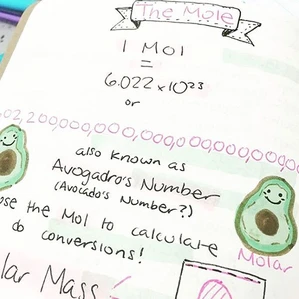 The Mole
1 Mol
=
6.022 x 10²³
or
02,200,000,000,000,000,000,00
also known as
Avogadro's Number
(Avocado's Number?)
use the Mol to calculate
Molar
do conversions!
lar Mass